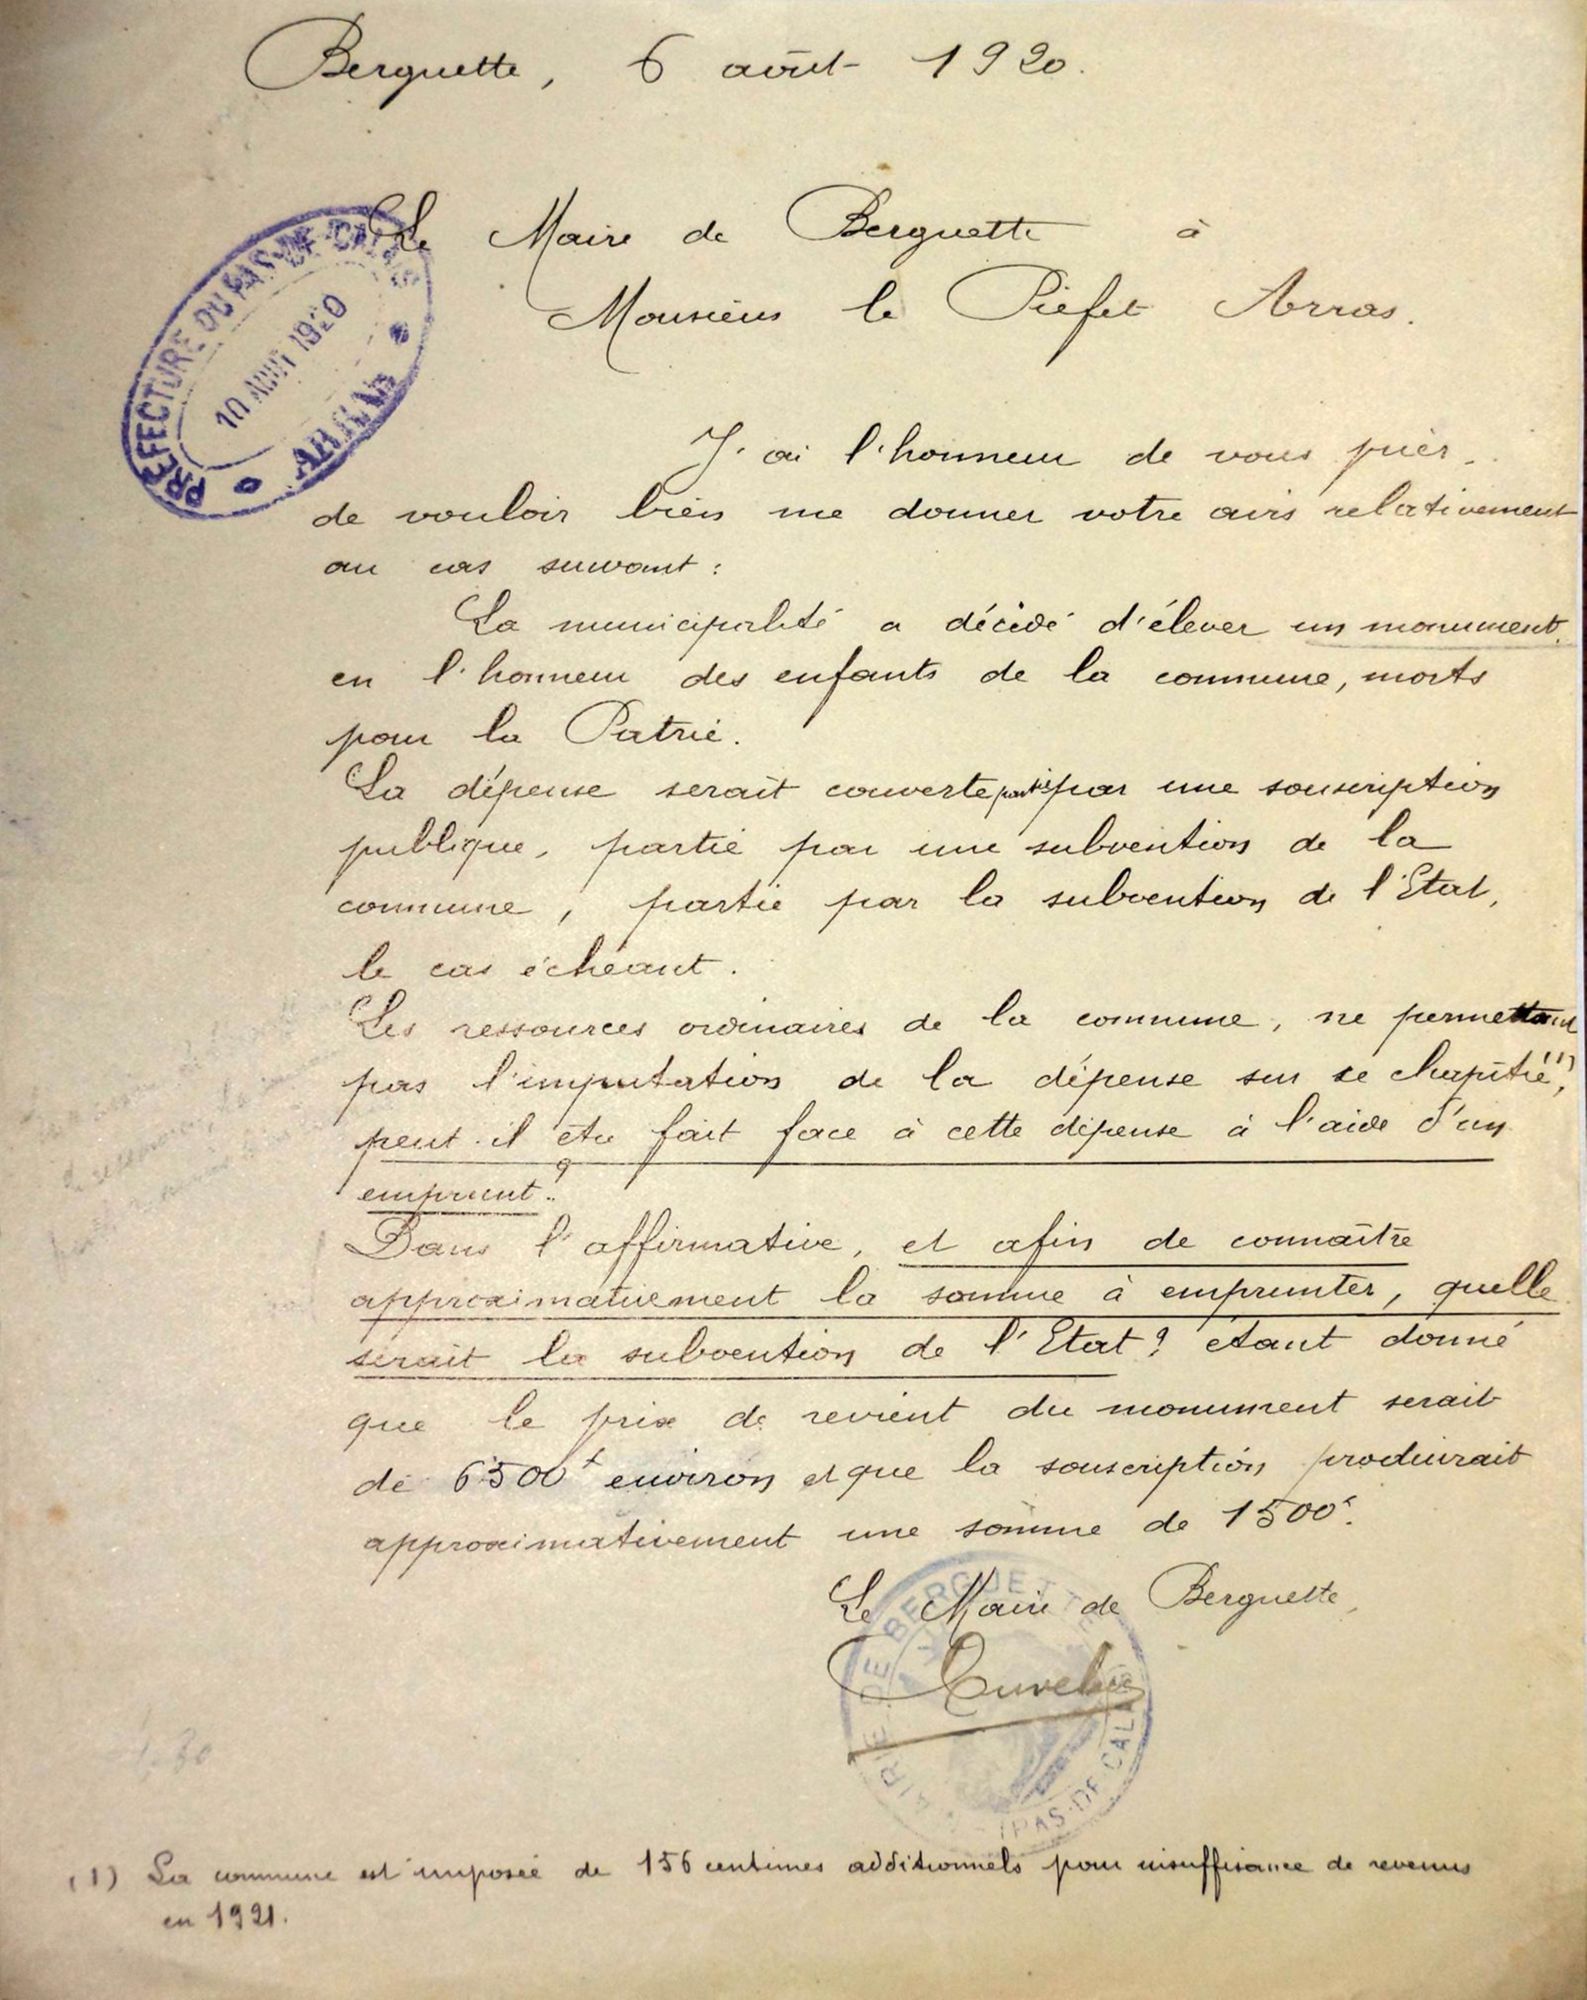 Berguette, 6 août 1920.
Le Maire de Berguette à
Monsieur le Préfet Arras.
PREFECTURE DU PAS-DE-CALAIS
10 AOUT 1920
ARRAS
J'ai l'honneur de vous prier
de vouloir bien me donner votre avis relativement
au cas suivant :
La municipalité a décidé d'élever un monument
en l'honneur des enfants de la commune, morts
pour la Patrie.
La dépense serait couverte partie par une souscription
publique, partie par une subvention de la
commune, partie par la subvention de l'Etat,
le cas échéant.
Les ressources ordinaires de la commune, ne permettant
pas l'imputation de la dépense sur ce chapitre (1),
peut-il être fait face à cette dépense à l'aide d'un
emprunt ?
Dans l'affirmative, et afin de connaître
approximativement la somme à emprunter, quelle
serait la subvention de l'Etat ? étant donné
que le prix de revient du monument serait
de 6500f environ et que la souscription produirait
approximativement une somme de 1500f.
Le Maire de Berguette,
MAIRIE DE BERGUETTE
(PAS-DE-CALAIS)
(1) La commune est imposée de 156 centimes additionnels pour insuffisance de revenus
en 1921.